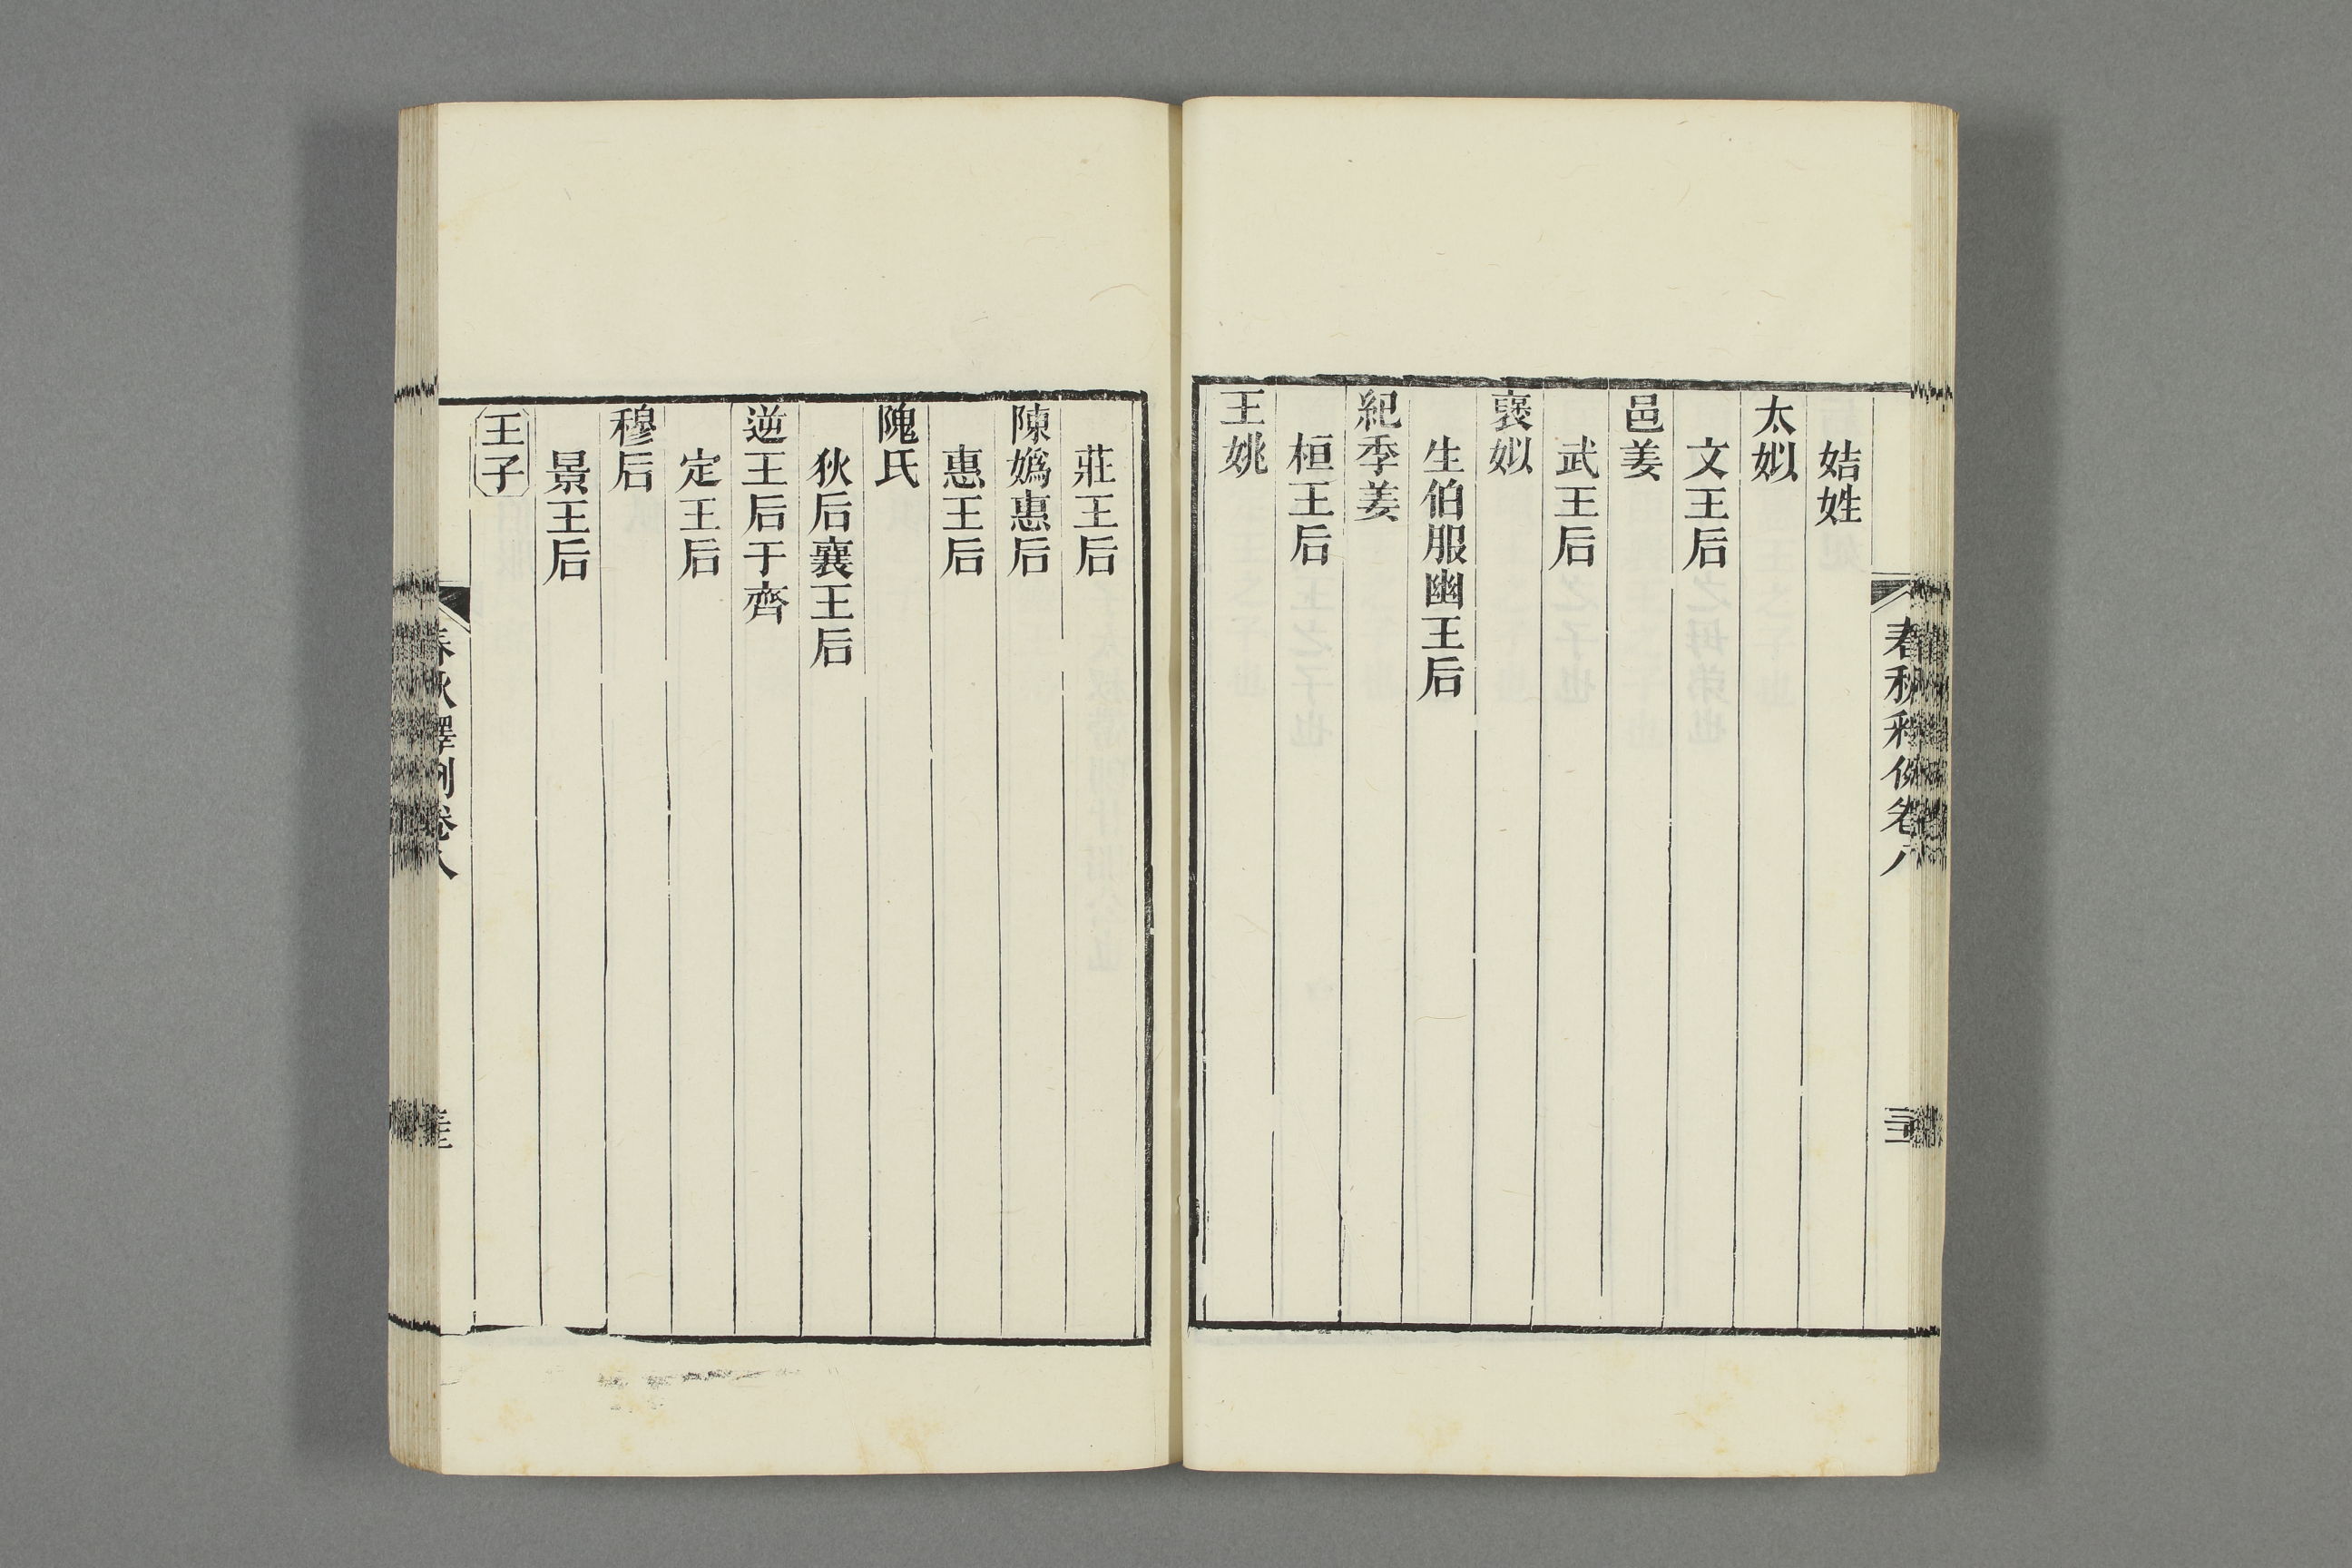 姞姓
太姒
文王后
邑姜
武王后
褒姒
生伯服幽王后
紀季姜
桓王后
王姚
莊王后
陳嬀惠后
惠王后
隗氏
狄后襄王后
逆王后于齊
定王后
穆后
景王后
王子